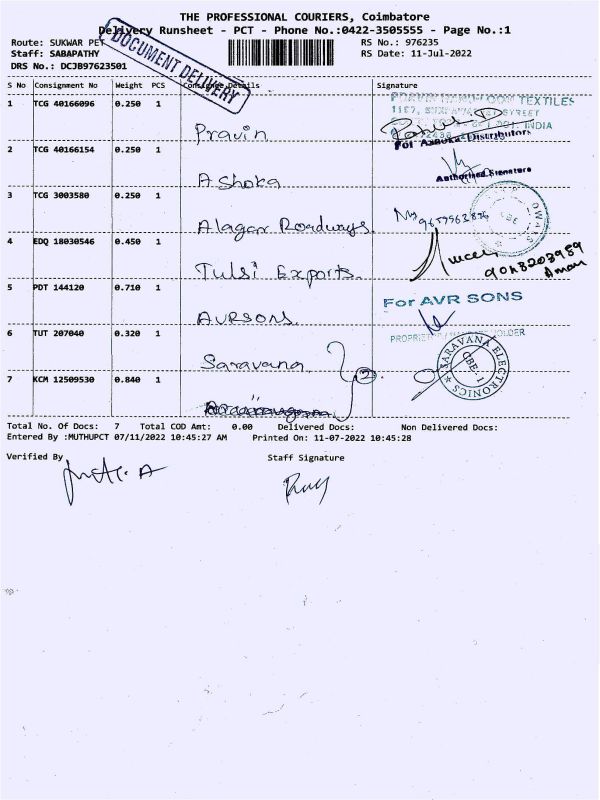 THE PROFESSIONAL COURIERS, Coimbatore
Delivery Runsheet - PCT - Phone No.:0422-3505555 - Page No.:1
Route: SUKWAR PET
RS No.: 976235
Staff: SABAPATHY
RS Date: 11-Jul-2022
DRS No.: DCJB97623501
DOCUMENT DELIVERY
S No Consignment No Weight PCS Consignee Details Signature
1 TCG 40166096 0.250 1 Pravin
TEXTILES
1187,
STREET
INDIA
For Ashoka Distributors
2 TCG 40166154 0.250 1 Ashoka
Authorised Signature
3 TCG 3003580 0.250 1 Alagar Roadways.
CBE
4 EDQ 18030546 0.450 1 Tulsi Exports.
Aman
5 PDT 144120 0.710 1 AVRSONS.
For AVR SONS
6 TUT 207040 0.320 1 Saravana.
SARAVANA ELECTRONICS
CBE-1
7 KCM 12509530 0.840 1
Total No. Of Docs: 7 Total COD Amt: 0.00 Delivered Docs: Non Delivered Docs:
Entered By :MUTHUPCT 07/11/2022 10:45:27 AM Printed On: 11-07-2022 10:45:28
Verified By
Staff Signature